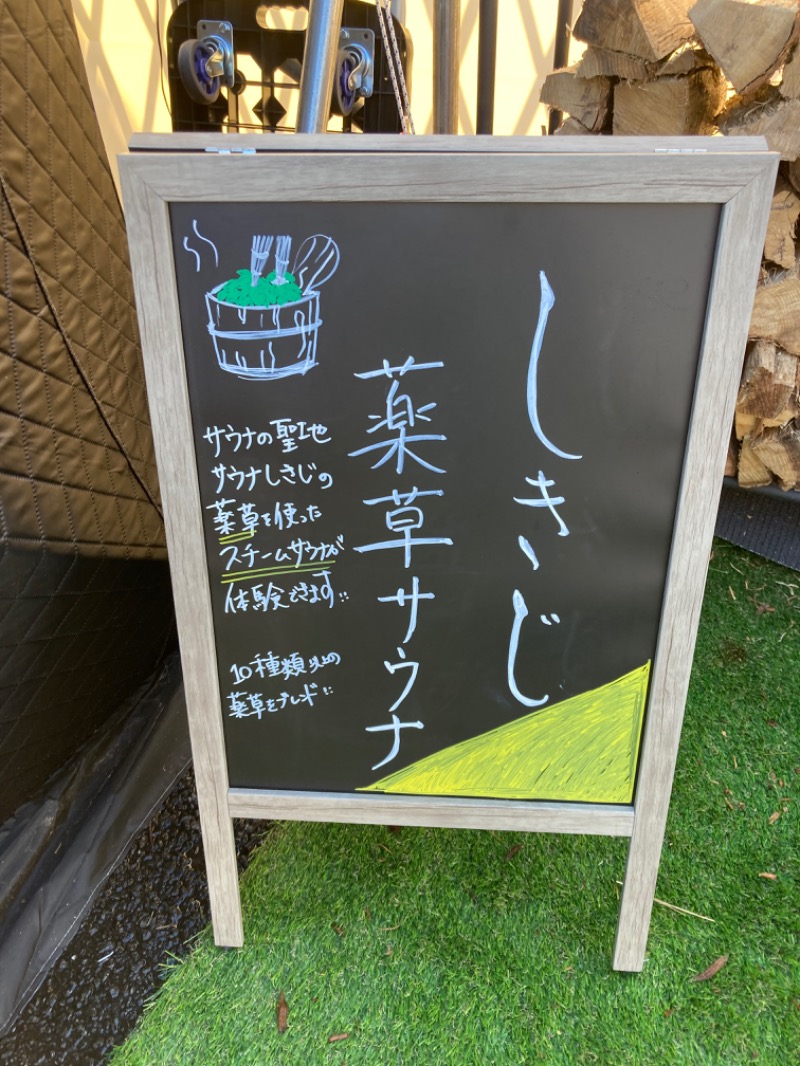 しきじ
薬草サウナ
サウナの聖地
サウナしきじの
薬草を使った
スチームサウナが
体験できます!!
10種類以上の
薬草をブレンド!!